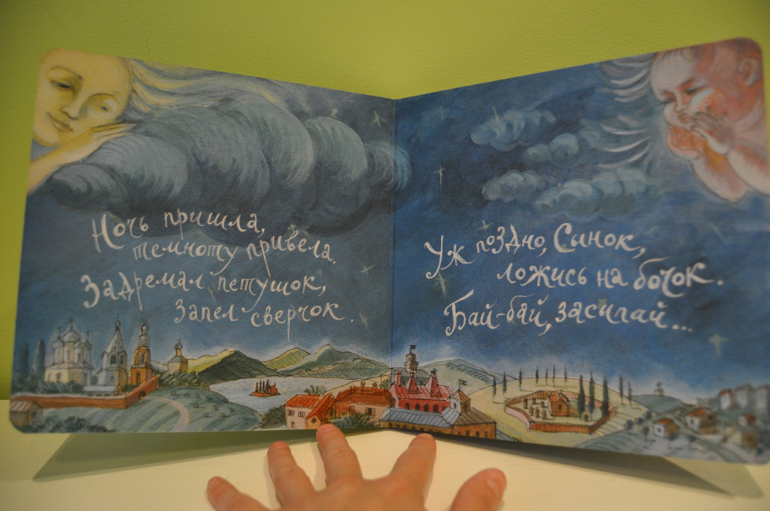 Ночь пришла,
темноту привела.
Задремал петушок,
Запел сверчок.
Уж поздно, Сынок,
ложись на бочок.
Бай-бай, засыпай...